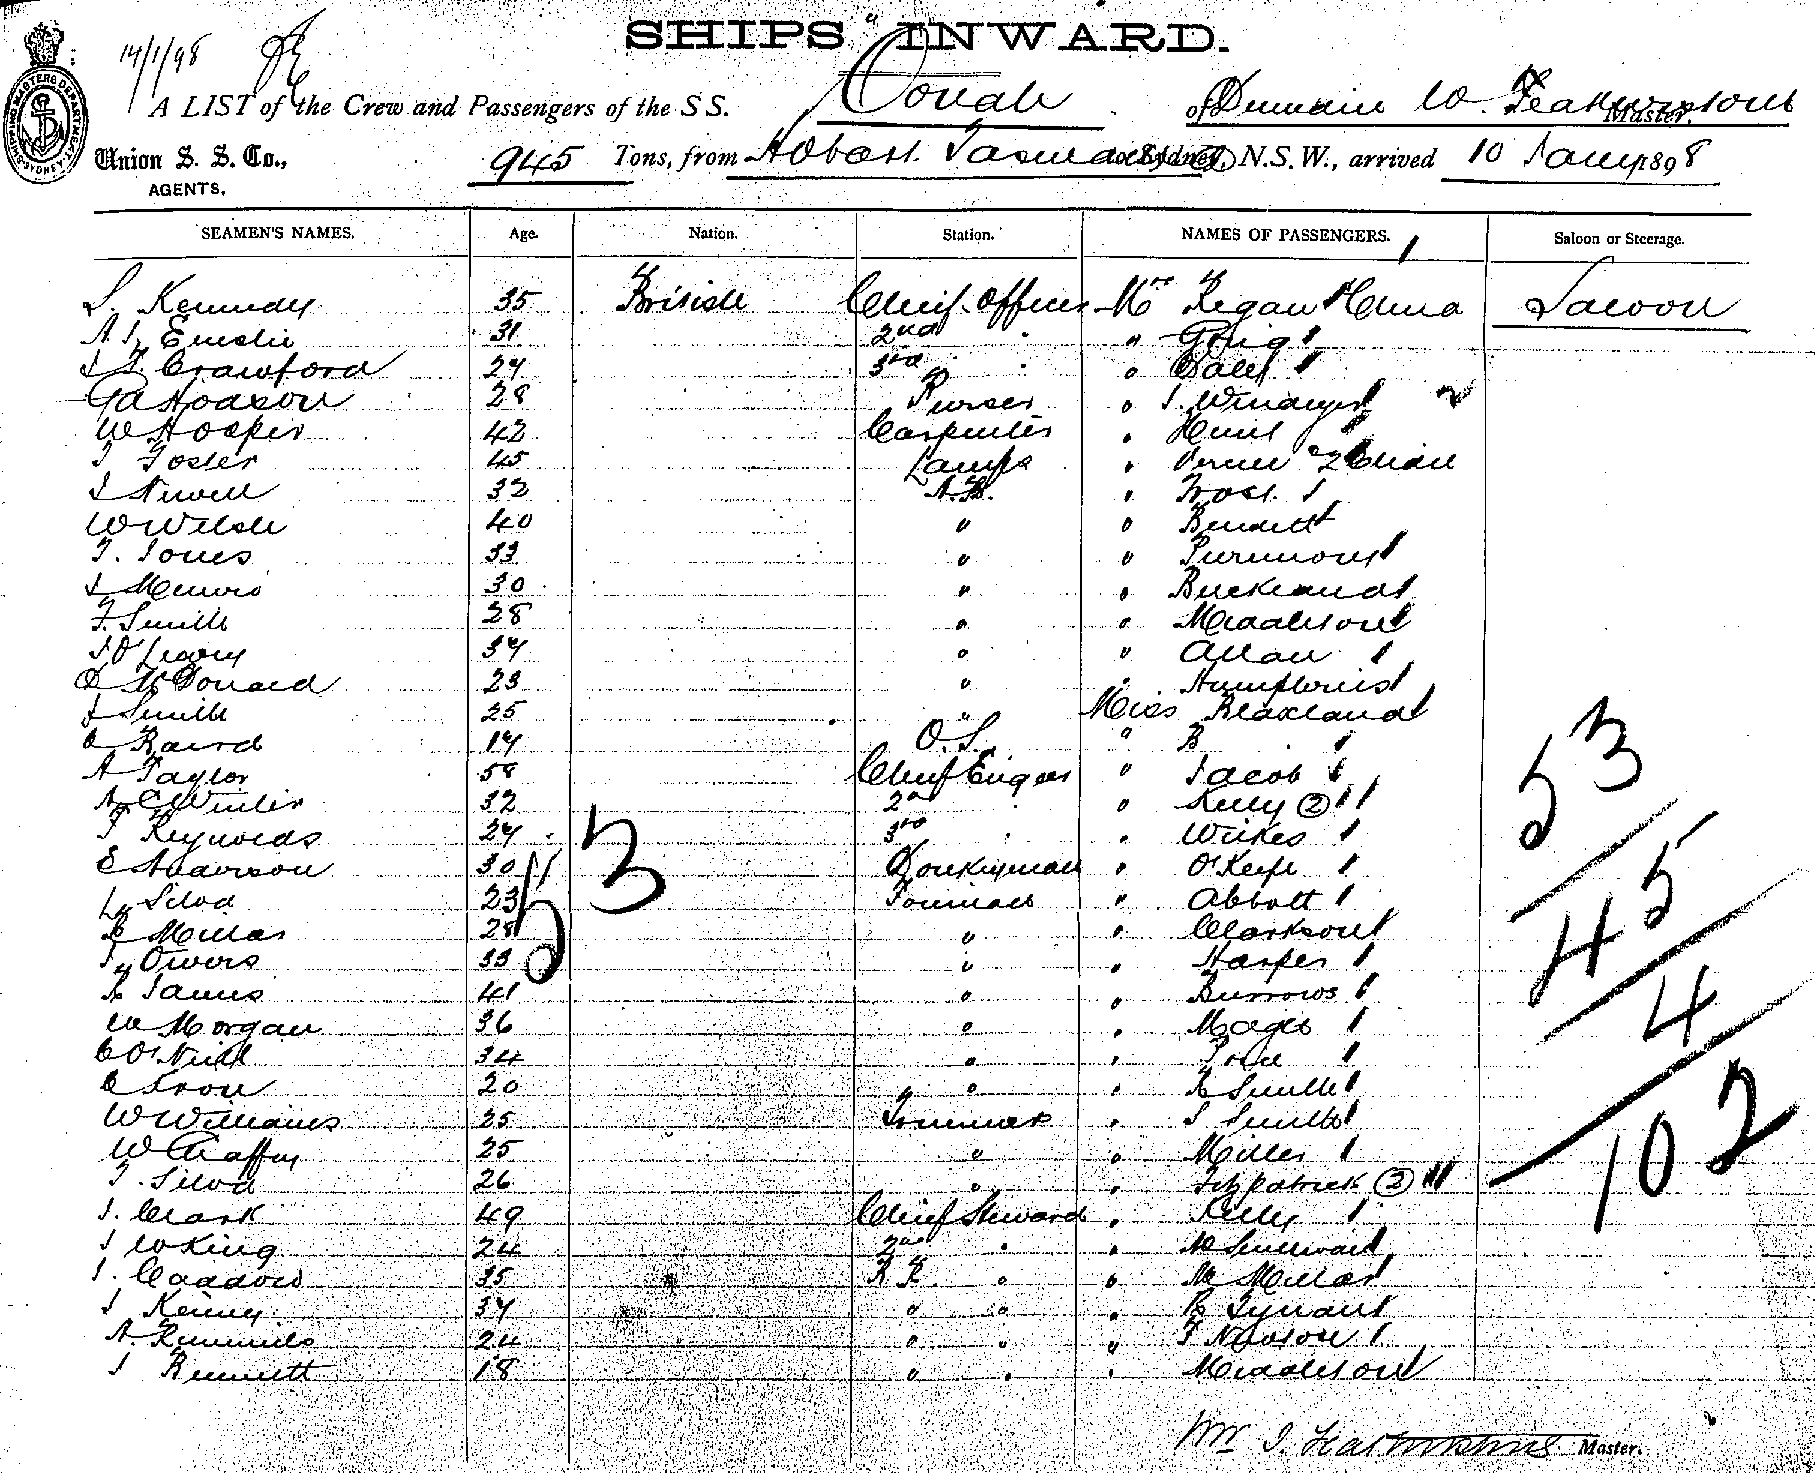 SHIPS INWARD.
14/1/98
A LIST of the Crew and Passengers of the SS. of Dunedin W. Master,
Union S. S. Co., AGENTS. 945 Tons, from Hobart Tasmania to Sydney, N.S.W., arrived 10 Jany 1898
SEAMEN'S NAMES. Age. Nation. Station. NAMES OF PASSENGERS. Saloon or Steerage.
S. Kennedy 35 British Chief Officer Mrs Regan Saloon
31 2nd " Greig
Crawford 27 3rd " Daley
GA Hodson 28 Purser " J.
W Hosper 42 Carpenter " Hunt
T Foster 45 Lamps " 2 Chidn
J Newell 32 A.B. " Frost
W Welsh 40 " " Bennett
T. Jones 33 " "
J Munro 30 " " Buckland
F. Smith 28 " " Middleton
J O'Leary 37 " " Allan
D McDonald 23 " " Humphries
J Smith 25 " Miss Blaxland
D Baird 17 O.S. " B
A Taylor 58 Chief Engineer " Jacob
A C Winter 32 2nd " Kelly 2
T Reynolds 27 3rd " Wilkes
E Anderson 30 Donkeyman " O'Keefe
L Silva 23 Fireman " Abbott
R Millar 28 " " Clarkson
T Owers 33 " " Harper
R James 41 " " Burrows
W Morgan 36 " "
C O'Neill 34 " "
D 20 " " R Smith
W Williams 25 Trimmer " J Smith
W Chaffey 25 " " Miller
T. Silva 26 " " Fitzpatrick 3
J. Clark 49 Chief Steward " Kelly
J W King 24 2nd "
J. Caddow 35 " " McMillar
J Kenny 37 " "
A. Rummies 24 " "
J Bennett 18 " " Middleton
53
53
45
4
102
Master.